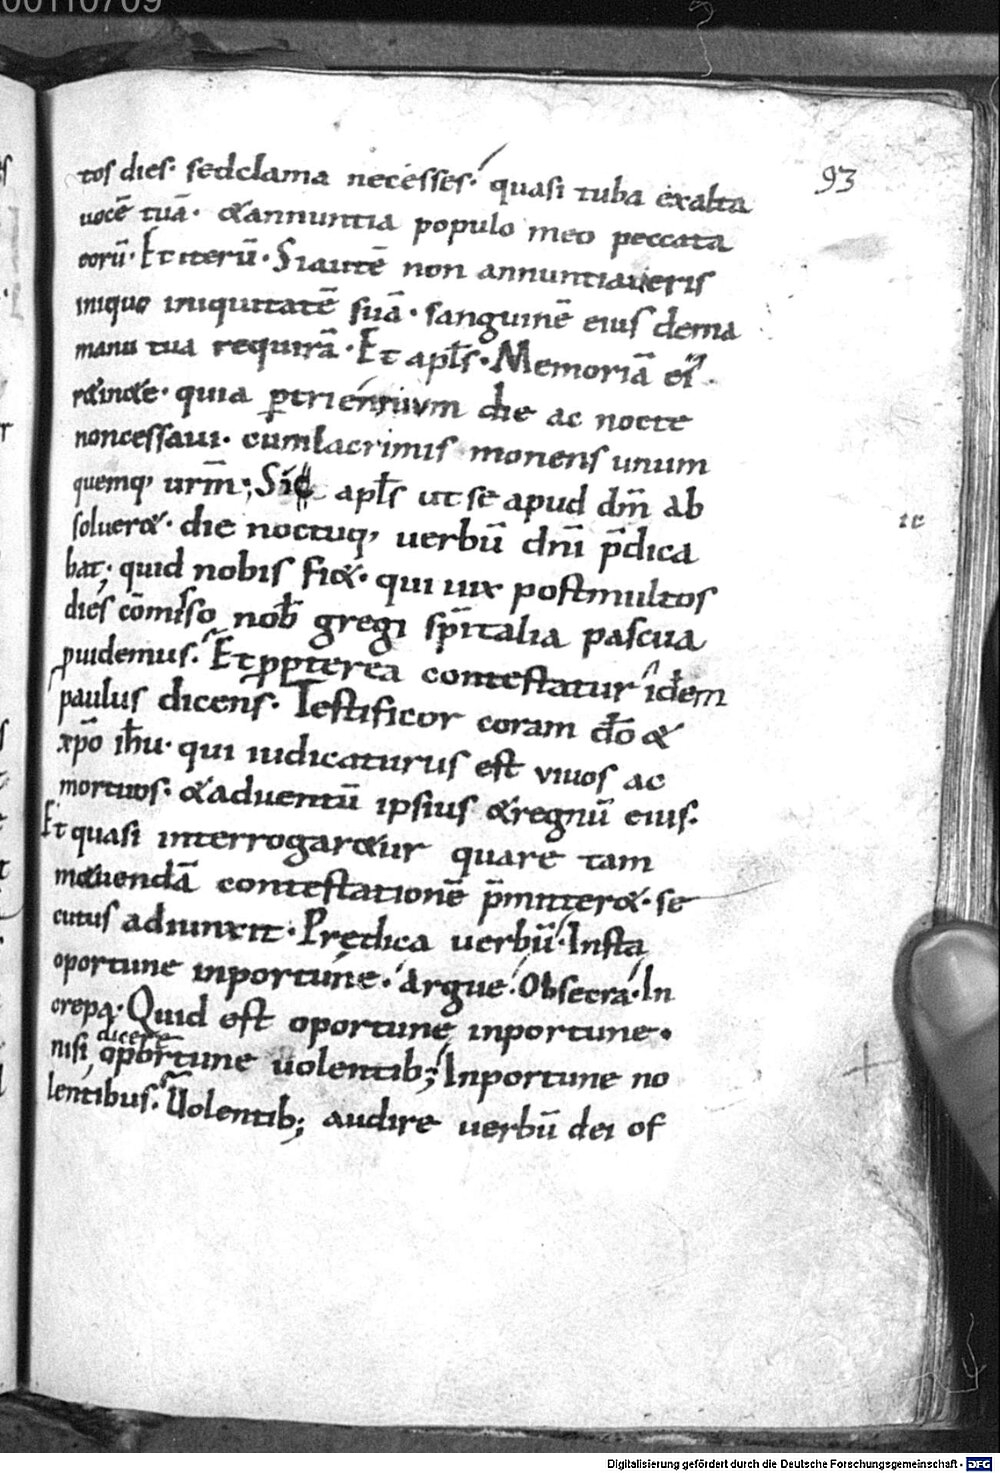 00110709
93
tos dies· sedclama necesses· quasi tuba exalta
uocē tuā· &annuntia populo meo peccata
eorū· Et iterū· Siautē non annuntiaueris
iniquo iniquitatē suā· sanguinē eius dema
manu tua requirā· Et apl̄s· Memoriā
r&in&e· quia die ac nocte
noncessaui· cumlacrimis monens unum
quemq; urm̄; Sic apl̄s ut se apud dm̄ ab
te
soluer&· die noctuq; uerbū dn̄i p̄dica
bat; quid nobis fi&· qui uix postmultos
dies cōmisso nob̄ gregi sp̄italia pascua
ꝓuidemus· Et ꝓpterea contestatur idem
paulus dicens· Testificor coram dō &
xp̄o ih̄u· qui iudicaturus est viuos ac
mortuos· &aduentū ipsius &regnū eius·
Et quasi interrogar&ur quare tam
m&uendā contestationē p̄mitter&· se
cutus adiunxit· Prędica uerbū· Insta
oportune inportune· Argue· Obsecra· In
crepa· Quid est oportune inportune·
dicere
nisi oportune uolentib; Inportune no
lentibus· Uolentib; audire uerbū dei of
Digitalisierung gefördert durch die Deutsche Forschungsgemeinschaft - DFG